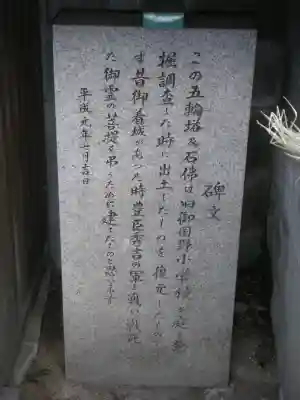 碑文
この五輪塔及石佛は旧御国野小学校々庭発
掘調査した時に出土したものを復元したもので
す昔御着城があった時豊臣秀吉の軍と戦い戦死
た御霊の菩提を弔うために建てたものと思います
平成元年七月吉日